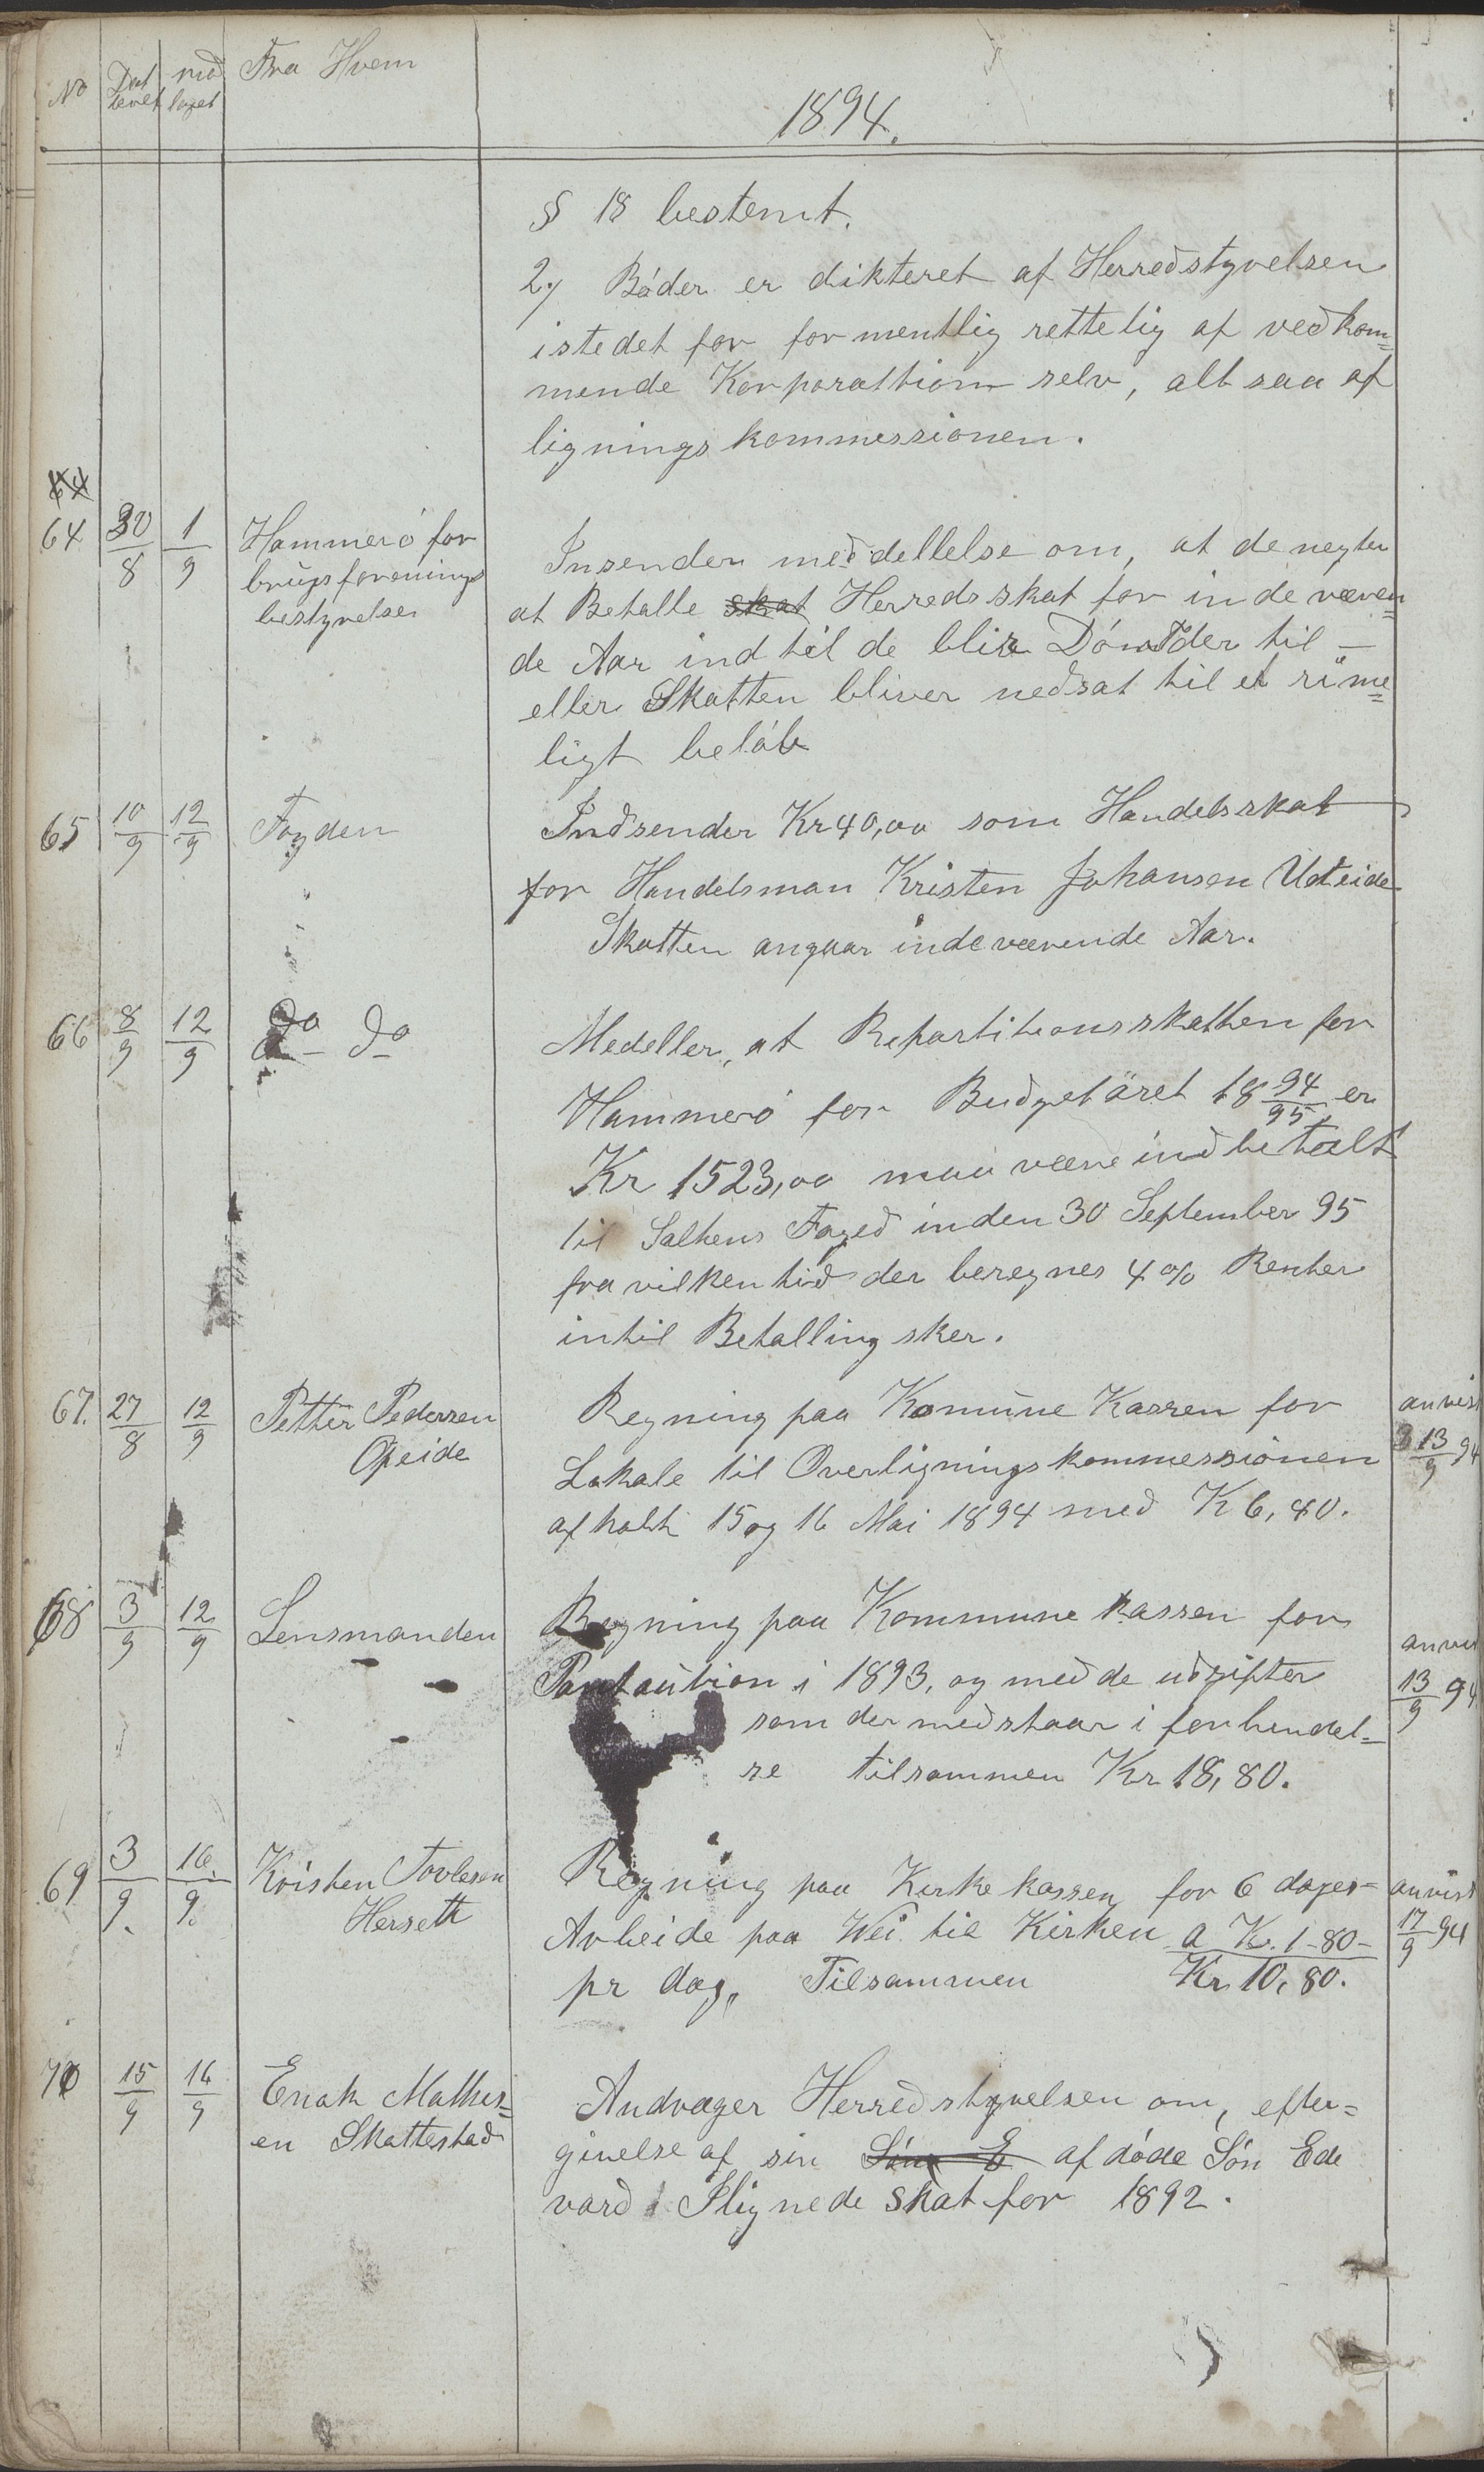 No Dat teret mod taget Fra Hvem
1894.
§ 18 bestemt.
2, Bøder er dikteret af Herredstyrelsen
istedet for formentlig rettelig af vedkom=
mende Korporattion selv, alt saa af
ligningskommessionen.
64
64 30/8 1/9 Hammerø for
brugsforenings
bestyrelse
Insender meddellelse om, at de negter
at Betalle skat Herreds skat for inde væren=
de Aar ind til de blir Dømt der til —
eller Skatten bliver nedsat til et rime=
ligt beløb
65 10/9 12/9 Fogden
Indsender Kr 40,00 som Handelsskat
for Handelsman Kristen Johansen Uteide
Skatten angaar indeværende Aar.
66 8/9 12/9 do do
Medeller, at Repartitionsskatten for
Hammerø for Budgetåret 18 94/95 er
Kr 1523,00 maa være indbetalt
til Saltens Foged inden 30 September 95
fra vilken tid der beregnes 4% Renter
intil Betalling sker.
67. 27/8 12/9 Petter Pedersen
Opeide
Regning paa Komune Kassen for
Lokale til Overligningskommessionen
afholdt 15 og 16 Mai 1894 med K 6,40.
anvist
13/9 94
68 3/9 12/9 Lensmanden
Regning paa Kommune kassen for
i 1893, og med de udgifter
som der med staar i forbindel=
se tilsammen Kr 18,80.
13/9 94
69 3/9. 16./9. Kristen Tovlesen
Hersett
Regning paa Kirke kassen for 6 dages=
Arbeide paa Wei til Kirken a Kr. 1-80-
pr dag, Tilsammen Kr 10,80.
anvist
17/9 94
70 15/9 16/9 Enok Mathis=
en Skattestad
Andrager Herredstyrelsen om, efter=
givelse af sin Søns E af døde Søn Ede
vard Ilignede skat for 1892.